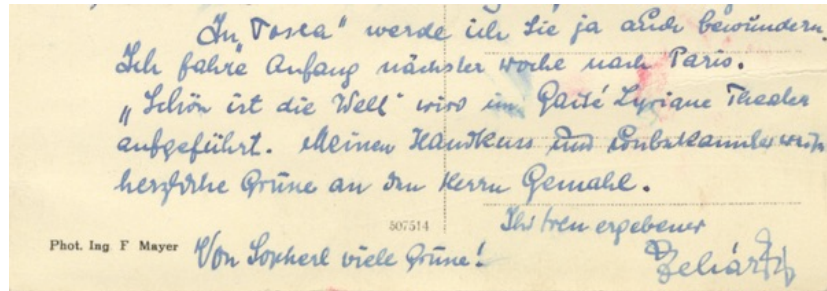 In „Tosca“ werde ich Sie ja auch bewundern.
Ich fahre Anfang nächster Woche nach Paris.
„Schön ist die Welt“ wird im Gaité Lyrique Theater
aufgeführt. Meinen Handkuss und unbekannterweise
herzliche Grüße an den Herrn Gemahl.
507514
Ihr treu ergebener
Phot. Ing F Mayer
Von Sopherl viele Grüße!
Lehár